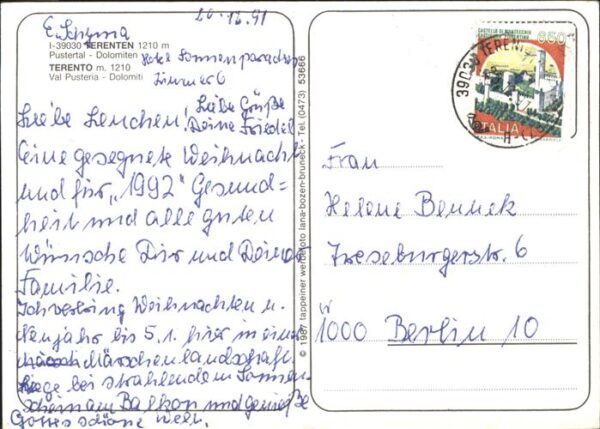 20-12.91
E. Schyma
I-39030 TERENTEN 1210 m
Pustertal - Dolomiten
TERENTO m. 1210
Val Pusteria - Dolomiti
Hotel Sonnenparadies
Zimmer 6
Liebe Grüße
Deine Friedel
Liebe Lenchen!
Eine gesegnete Weihnacht
und für „1992" Gesund=
heit und alle guten
Wünsche Dir und Deiner
Familie.
Ich verbring Weihnachten u.
Neujahr bis 5.1. hier in einer
Märchenlandschaft
liege bei strahlendem Sonnen-
schein am Balkon und genieße
Gottes schöne Welt.
© 1987 tappeiner werbefoto lana-bozen-bruneck - Tel. (0473) 53666
CASTELLO DI MONTECCHIO
650
ITALIA
39030 TERENT
Frau
Helene Bennek
Treseburgerstr. 6
W
1000 Berlin 10